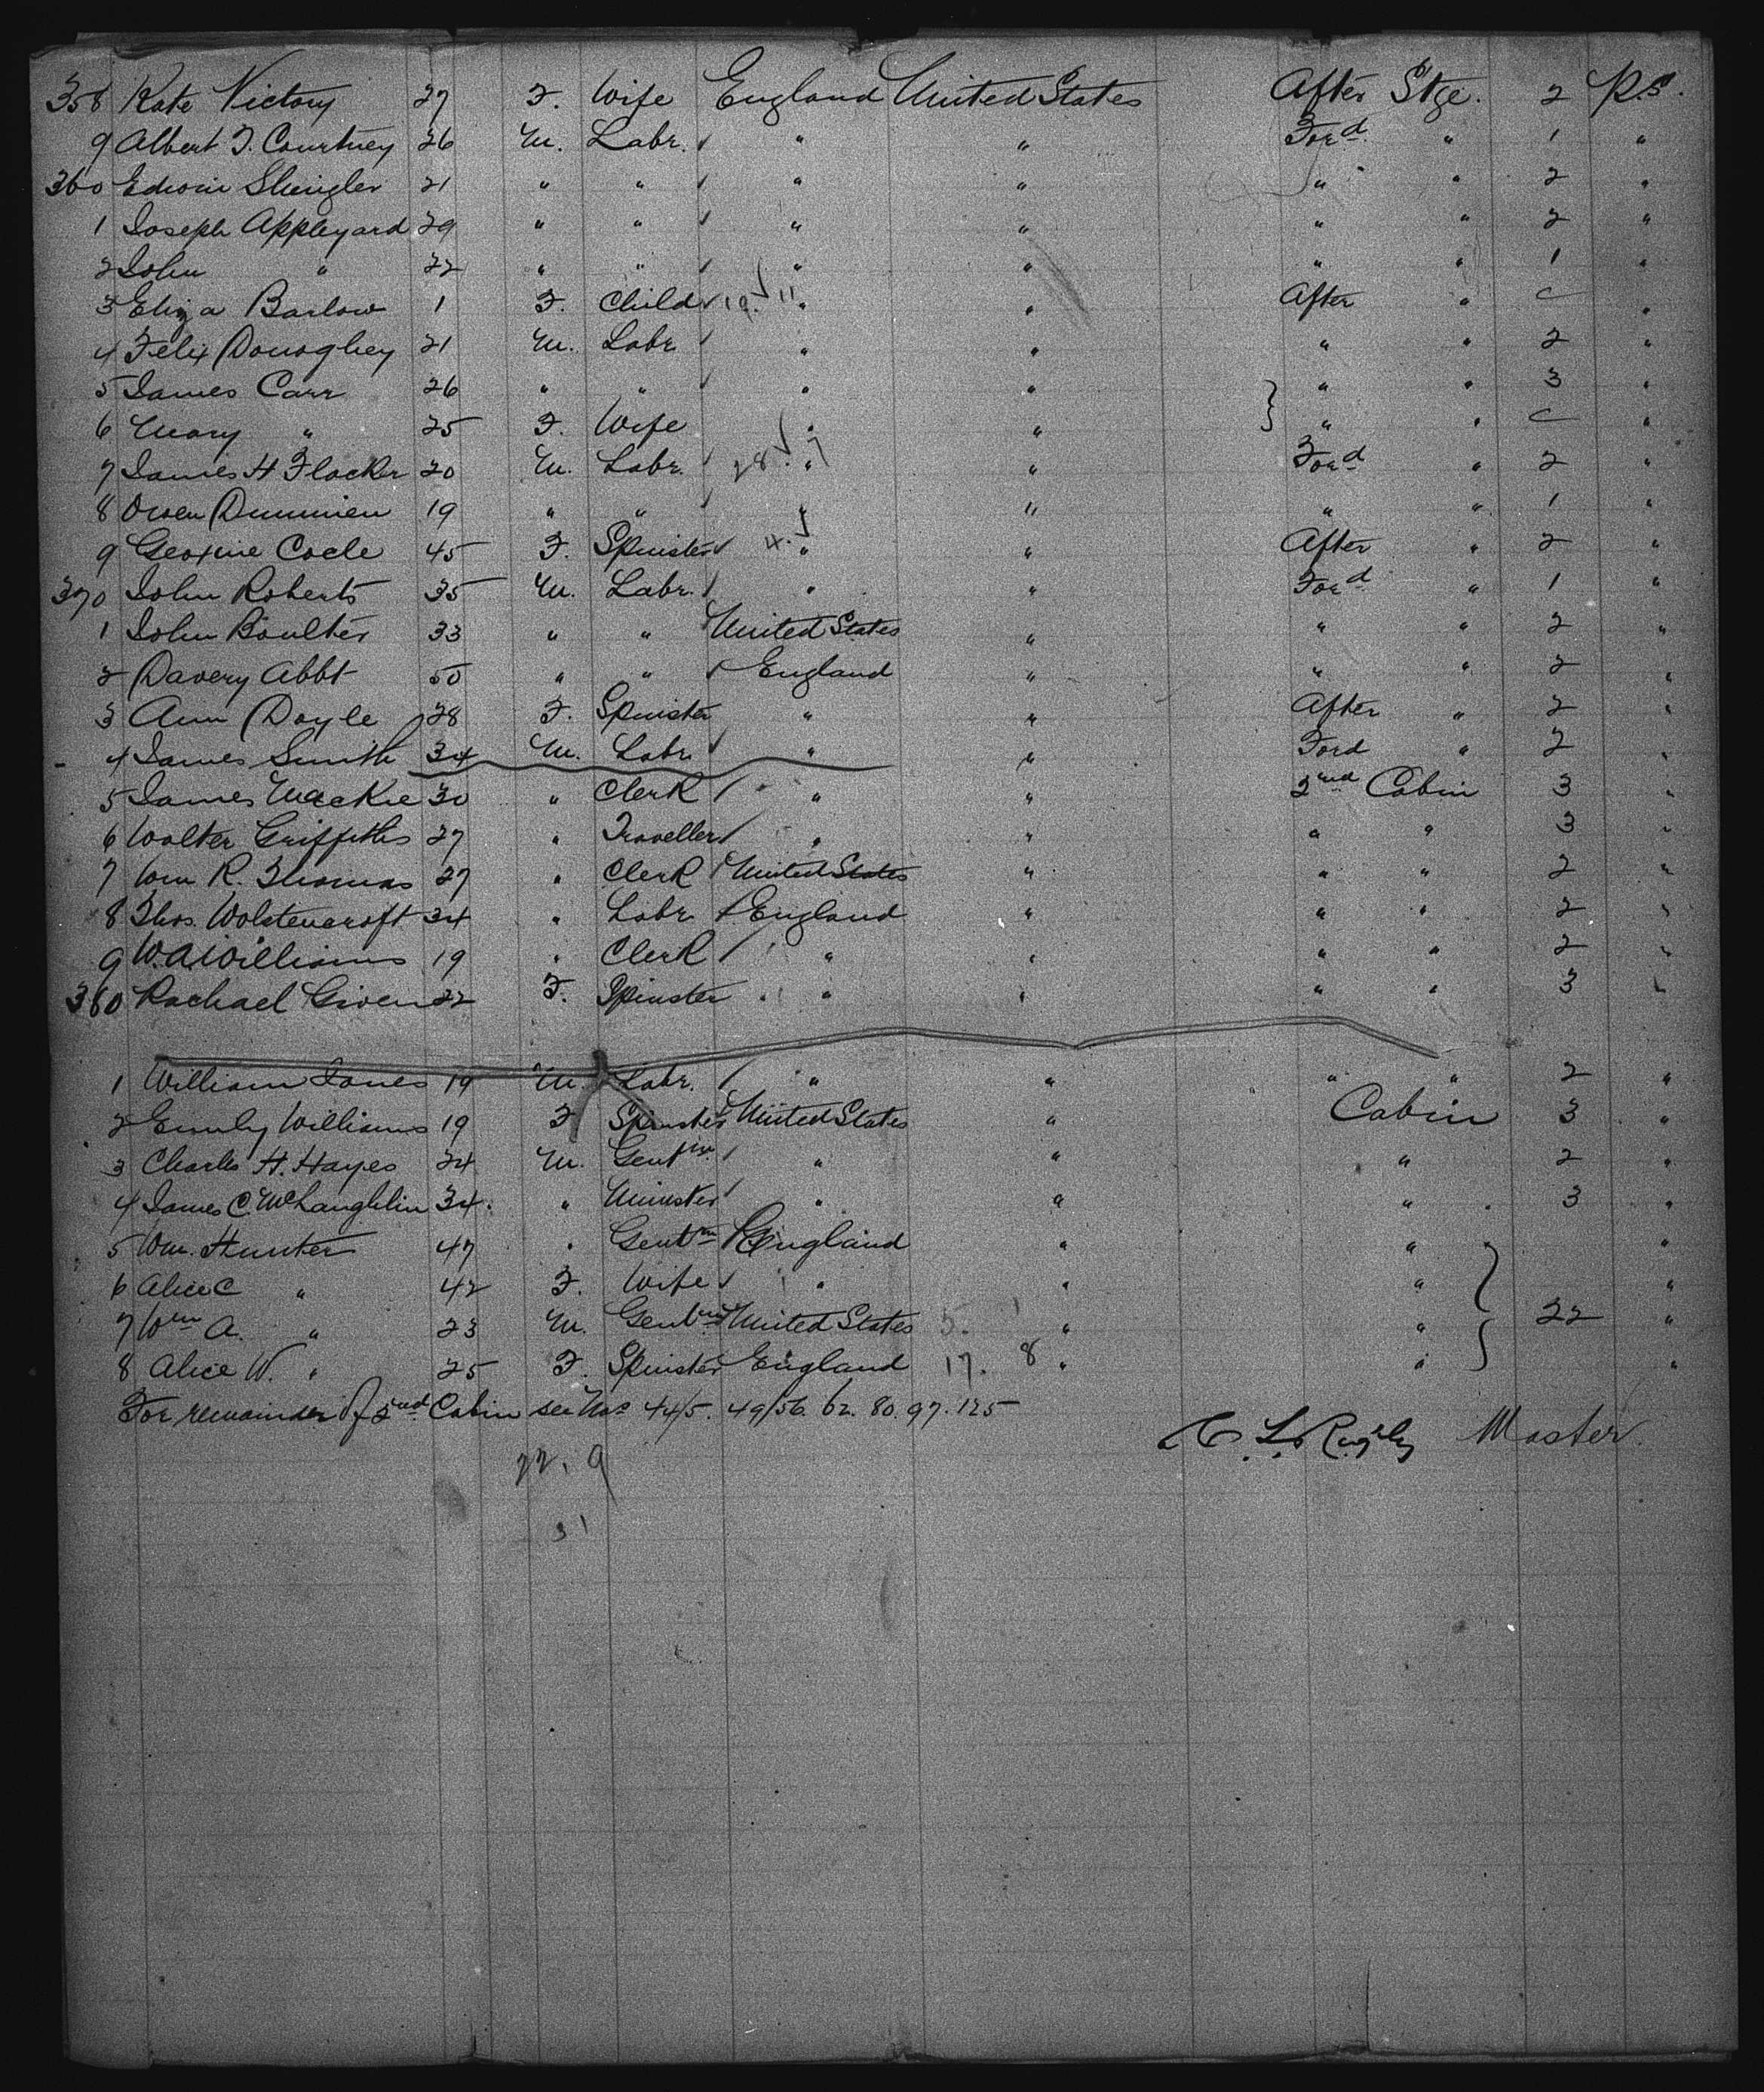 358 Kate Victory 27 F. Wife England United States After Stge. 2 P.S.
9 Albert T. Courtney 26 M. Labr. " " Ford " 1 "
360 Edwin Shingler 21 " " " " " " 2 "
1 Joseph Appleyard 29 " " " " " " 2 "
2 John " 22 " " " " " " 1 "
3 Eliza Barlow 1 F. Child 19. 11 " " After " c "
4 Felix Donoghey 21 M. Labr " " " " 2 "
5 James Carr 26 " " " " " " 3 "
6 Mary " 25 F. Wife " " " " c "
7 James H Flocker 20 M. Labr. 28. 7 " " Ford " 2 "
8 Owen 19 " " " " " " 1 "
9 45 F. Spinster 4. " " After " 2 "
370 John Roberts 35 M. Labr. " " Ford " 1 "
1 John Boulter 33 " " United States " " " 2 "
2 Davery Abbt 50 " " England " " " 2 "
3 Ann Doyle 28 F. Spinster " " After " 2 "
4 James Smith 34 M. Labr " " Ford " 2 "
5 James Mackie 30 " Clerk " " 2nd Cabin 3 "
6 Walter Griffiths 27 " Traveller " " " " 3 "
7 Wm R. Thomas 27 " Clerk United States " " " 2 "
8 Thos. Wolstencroft 34 " Labr England " " " 2 "
9 W.A. Williams 19 " Clerk " " " " 2 "
380 Rachael Given 22 F. Spinster " " " " 3 "
1 William Jones 19 M. Labr. " " " " 2 "
2 Emily Williams 19 F Spinster United States " Cabin 3 "
3 Charles H. Hayes 24 M. Gentm " " " 2 "
4 James C. McLaughlin 34. " Minister " " " 3 "
5 Wm. Hunter 47 " Gentm England " " "
6 Alice C " 42 F. Wife " " " "
7 Wm A. " 23 M. Gentm United States 5. " " 22 "
8 Alice W. " 25 F. Spinster England 17. 8 " " "
For remainder of 2nd Cabin see Nos 44/5. 49/56. 62. 80. 97. 125
Master.
22. 9
31